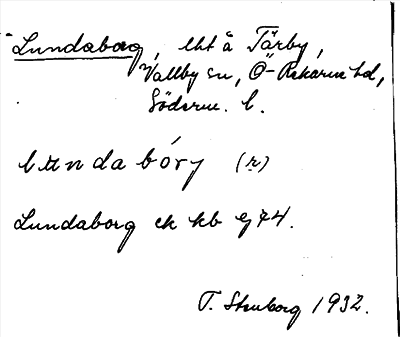 Lundaborg, lht å Tärby,
Vallby sn, Ö-Rekarne hd,
Söderm. l.
lundabóry (r)
Lundaborg ek kb 9/44.
T. Stenborg 1932.